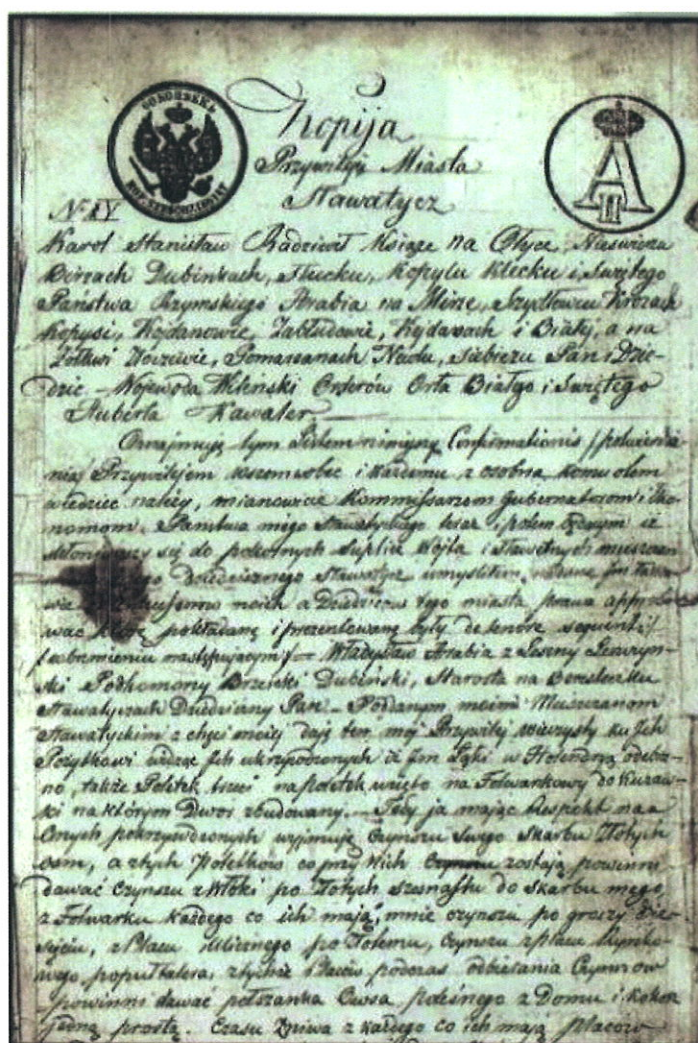 Kopija
Przywileju Miasta
Sławatycz
N. XV
Karol Stanisław Radziwił Książe na Ołyce, Nieswieżu
Birzach Dubinkach, Słucku, Kopylu Klecku i Swiętego
Państwa Rzymskiego Hrabia na Mirze, Szydłowcu Krozach
Kopysi, Kojdanowie, Zabłudowie, Kiejdanach i Białej, a na
Żołkwi Złoczowie, Pomarzanach Newlu, Siebieżu Pan i Dzie-
dzic – Wojewoda Wileński Orderów Orła Białego i Swiętego
Huberta Kawaler
Oznajmuję tym Listem niniejszy Confirmationis // potwierdze-
nia/ Przywilejem wszem wobec i każdemu z osobna komu o tem
wiedzieć należy, mianowicie Kommissarzom Gubernatorom i Eko-
nomom Państwa mego Sławatyckiego teraz i potem będącym iż
skłoniwszy się do pokornych suplik Wójta i Sławetnych mieszczan
Dziedzicznego Sławatycz umyśliłem
moich a Dziedziców tego miasta prawa approbo-
wać które pokładane i prezentowane były de tenore sequenti /
/ w brzmieniu następującym / – Władysław Hrabia z Leszny Leszczyn-
ski Podkomorzy Brzeski Dubiński, Starosta na
Sławatyczach Dziedziczny Pan – Poddanym moim Mieszczanom
Sławatyckim z chęci mojej daję ten mój Przywilej wieczysty ku Ich
Pożytkowi widząc Ich ukrzywdzonych iż Im Łąki w Holendrją odebra-
no, także Poletek trzeci na poletek wzięto na Folwarkowy do Kuzaw-
ki na którym Dwór zbudowany. – Tedy ja mając Respekt na
onych pokrzywdzonych wyjmuję Czynszu swego Skarbu Złotych
osm, a z tych Poletków co przy Nich zostają powinni
dawać Czynszu z Włoki po Złotych szesnastu do Skarbu mego
z Folwarku każdego co ich mają, mnie czynszu po groszy dzie-
sięciu, z Placu Ulicznego po Złotemu, Czynszu z placu Rynko-
wego po puł talera, z tychże Placów podczas oddawania Czynszów
powinni dawać półszanka Owsa, poleśnego z Domu i Kokosz
jedną prostą. Czasu Żniwa z każdego co ich mają Placów